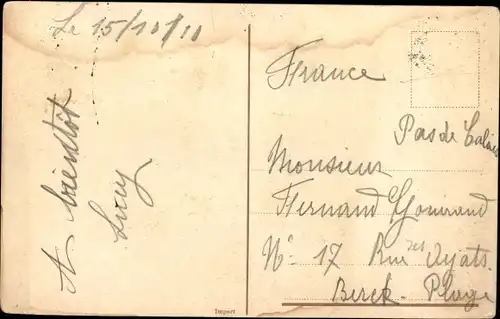 Le 15/10/11
A bientôt
Lucy
France
Pas de Calais
Monsieur
Fernand Gouirand
N° 17 Rue des
Berck-Plage
Import